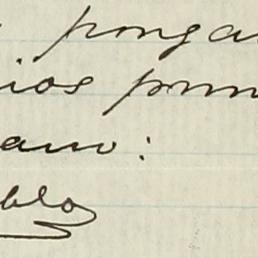 ponga
ios prin
ano:
blo